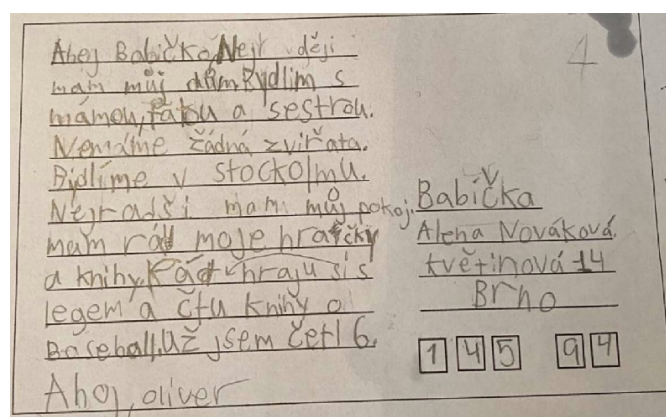 Ahoj Babičko, Nejr ději
mam můj dům. Bydlim s
mámou, tátou a sestrou.
Nemáme žádná zviřata.
Bidlíme v stockolmu.
Nejradši mam můj pokoj.
mam rád moje hračky
a knihy. Rád hraju si s
legem a čtu knihy o
Baseball. Už jsem četl 6.
Ahoj, oliver
4
Babička
Alena Nováková
květinová 14
Brno
145 94